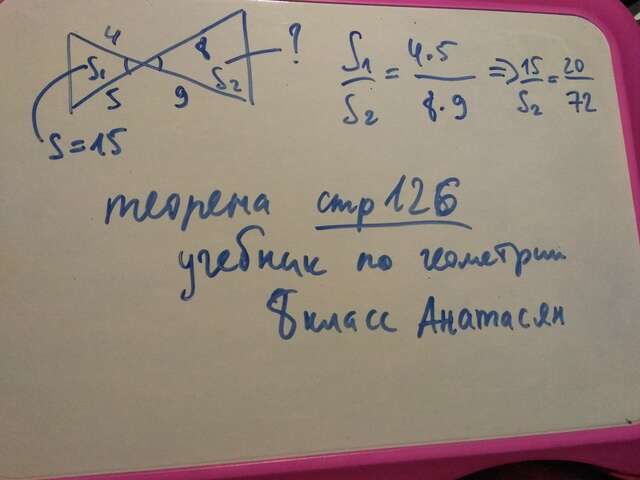 4 8 ?
S₁ S₂
5 9
S=15
S₁/S₂ = 4·5/8·9 => 15/S₂ = 20/72
теорема стр 126
учебник по геометрии
8 класс Анатасян